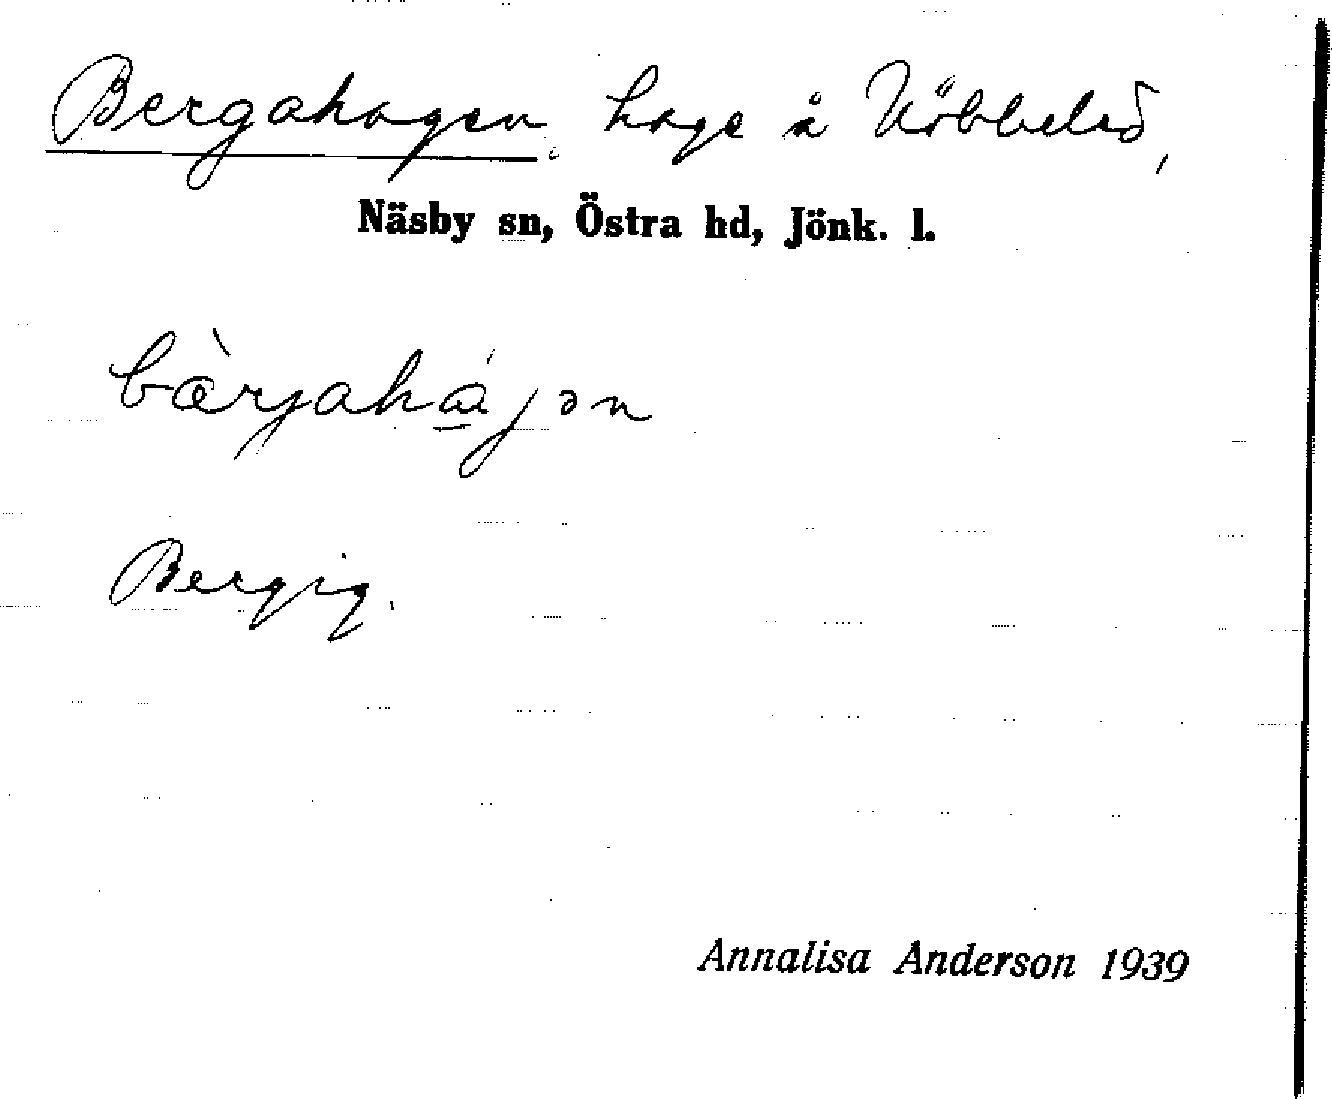 Bergahagen. hage å Nöbbeled,
Näsby sn, Östra hd, Jönk. l.
bæ̀rjahájən
Bergig.
Annalisa Anderson 1939